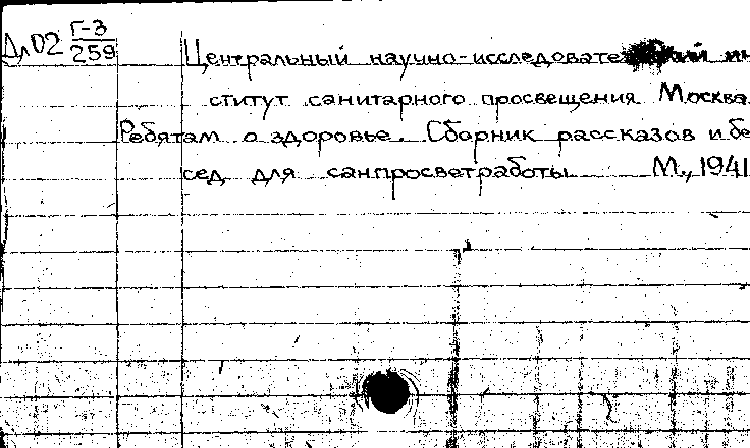 Дл02 Г-3
259
Центральный научно-исследовательский ин
ститут санитарного просвещения Москва.
Ребятам о здоровье. Сборник рассказов и бе
сед для санпросветработы М., 1941